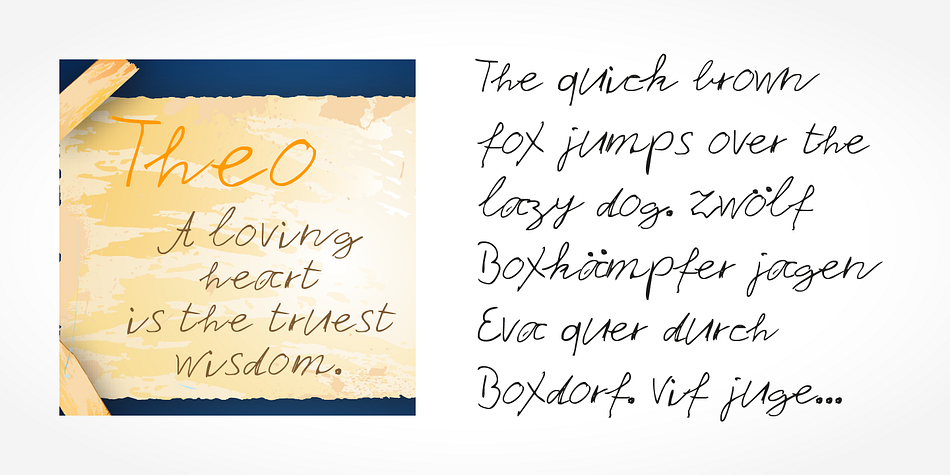 Theo
A loving
heart
is the truest
wisdom.
The quick brown
fox jumps over the
lazy dog. Zwölf
Boxkämpfer jagen
Eva quer durch
Boxdorf. Vif juge...